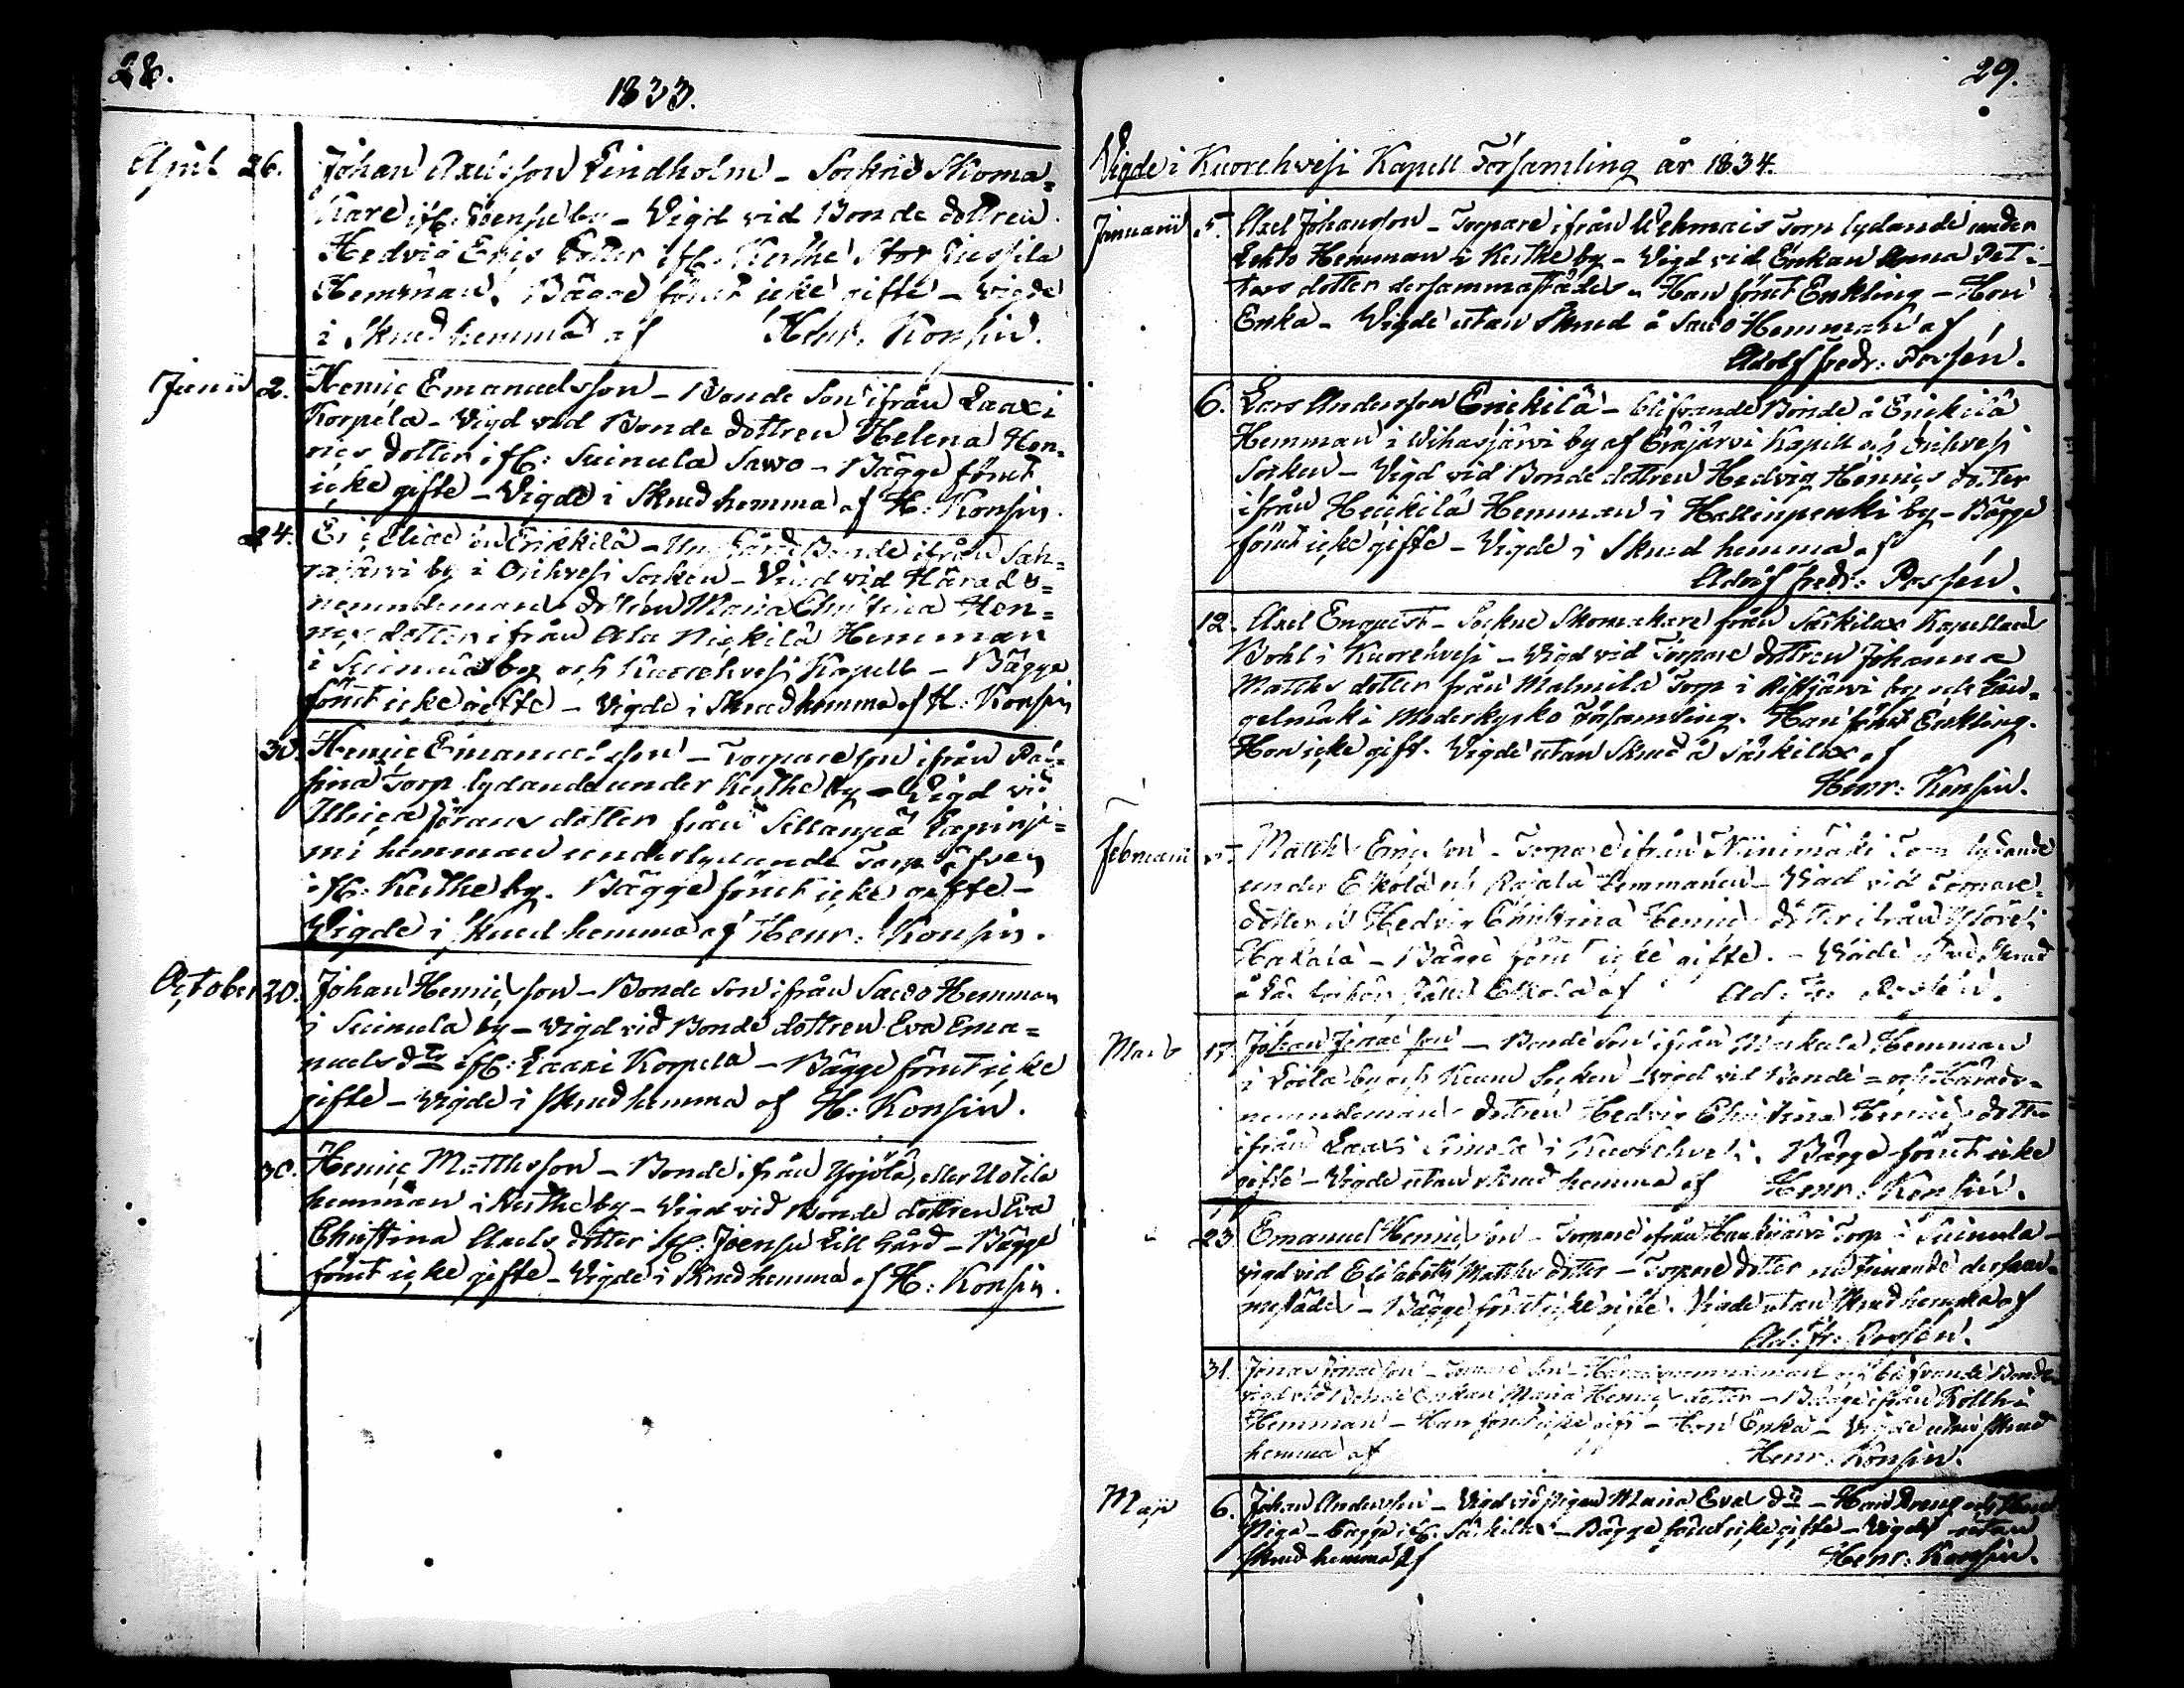 28.
1833.
April 26. Johan Axelsson Lindholm - Sockne Skoma=
kare ifr: Joensu by - Vigd vid Bonde dottren
Hedvig Erics dotter ifr: Keithe Stor
Hemman. Bägge förut icke gifte - vigde
i Skrud hemma af Henr: Konsin.
Junii 2. Henric Emanuelsson - Bonde Son ifrån Laaxi
Korpela - Vigd vid Bonde dottren Helena Hen=
rics dotter ifr: Suinula Sawo - Bägge förut
icke gifte - Vigde i Skrud hemma af H: Konsin.
24. Eric Eliae son Erickilä - Bonde ifrån Sah=
rajärvi by i Orihvesi Socken - Vigd vid Härads=
nemndemans dottren Maria Christina Hen=
rics dotter ifrån Ala Nickilä Hemman
i Suinula by och Kuorehvesi Kapell - Bägge
förut icke gifte - Vigde i Skrud hemma af H: Konsin
30. Henric Emanuelsson - Torpare son ifrån
Torp lydande under Keithe by - Vigd vid
Ulrica Jörans dotter från Sillanpä
hemman underlydande Torp äfven
ifr: Keithe by. Bägge förut icke gifte -
Vigde i Skrud hemma af Henr: Konsin.
October 20. Johan Henricsson - Bonde Son ifrån Sawo Hemman
i Suinula by - Vigd vid Bonde dottren Eva Ema=
nuels dtr ifr: Laaxi Korpela - Bägge förut icke
gifte - Vigde i Skrud hemma af H: Konsin.
30. Henric Matthsson - Bonde ifrån Yrjölä, eller Uotila
hemman i Keithe by - Vigd vid Bonde dottren Eva
Christina Axels dotter ifr: Joensu Lill Gård - Bägge
förut icke gifte - Vigde i Skrud hemma af H: Konsin.
29.
Vigde i Kuorehvesi Kapell Församling år 1834.
Januarii 5. Axel Johansson - Torpare ifrån Wehmais Torp lydande under
Hemman i Keithe by - Vigd vid Enkan Anna
dotter dersammastädes - Han förut Enkling - Hon
Enka - Vigde utan Skrud å Sawo Hemman af
Adolf Fredr: Possén.
6. Lars Andersson Erickilä - blifvande Bonde å Erickilä
Hemman i Wihasjärvi by af Eräjärvi Kapell och Orihvesi
Socken - Vigd vid Bonde dottren Hedvig Henrics dotter
ifrån Heickilä Hemman i Hallinpenki by - Bägge
förut icke gifte - Vigde i Skrud hemma af
Adolf Fredr: Possén.
12. Axel Enquist - Sockne Skomakare från Särkilax Kapellans
Bohl i Kuorehvesi - Vigd vid Torpare dottren Johanna
Matths dotter från Malmila Torp i Ristjärvi by och Län=
gelmäki Moderkyrko Församling. Han förut Enkling.
Hon icke gift. Vigde utan Skrud å Särkilax af
Henr: Konsin.
Februarii Matth: Ericsson - Torpare ifrån Niinimäki Torp lydande
under Eskola och Rajala Hemmanen - Vigd vid Torpare=
dottren Hedvig Christina Henrics dotter ifrån
Hakala - Bägge förut icke gifte. - Vigde utan Skrud
å Eskola af Ad: Fr: Possén.
Mars 17. Johan Jonae son - Bonde Son ifrån Hemman
i by och Socken - Vigd vid Bonde= och Härads=
nemndemans dottren Hedvig Christina Henrics dotter
ifrån Laaxi Simola i Kuorehvesi. Bägge förut icke
gifte - Vigde utan Skrud hemma af Henr: Konsin.
23 Emanuel Henricsson - Torpare ifrån Haukijärvi Torp i Suinula -
vigd vid Elisabeth Matths dotter - Torpare dotter dersam=
mastädes - Bägge förut icke gifte. Vigde utan Skrud hemma af
Ad: Fr: Possén.
31. Jonas Jonae son - Torpare Son - Häradsnemndeman och blifvande Bonde
vigd vid Bonde Enkan Maria Henrics dotter - Bägge ifrån
Hemman - Han förut icke gift - Hon Enka - Vigde utan Skrud
hemma af Henr: Konsin.
Maji 6. Johan Andersson - Vigd vid Pigan Maria Evas dtr - Han Dreng och Hon
Piga - bägge ifr: Särkilax - Bägge förut icke gifte - Vigde utan
Skrud hemma af Henr: Konsin.